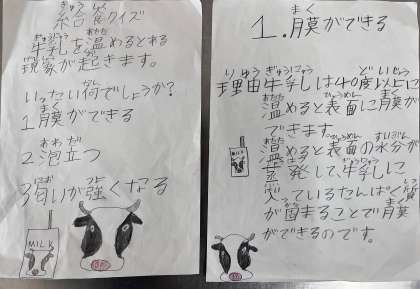 給食クイズ
牛乳を温めるとある
現象が起きます。
いったい何でしょうか?
1膜ができる
2泡立つ
3匂いが強くなる
MILK
1.膜ができる
理由牛乳は40度以上に
温めると表面に膜が
できます。
温めると表面の水分が
蒸発して、牛乳に
入っているたんぱく質
が固まることで膜
ができるのです。
MILK